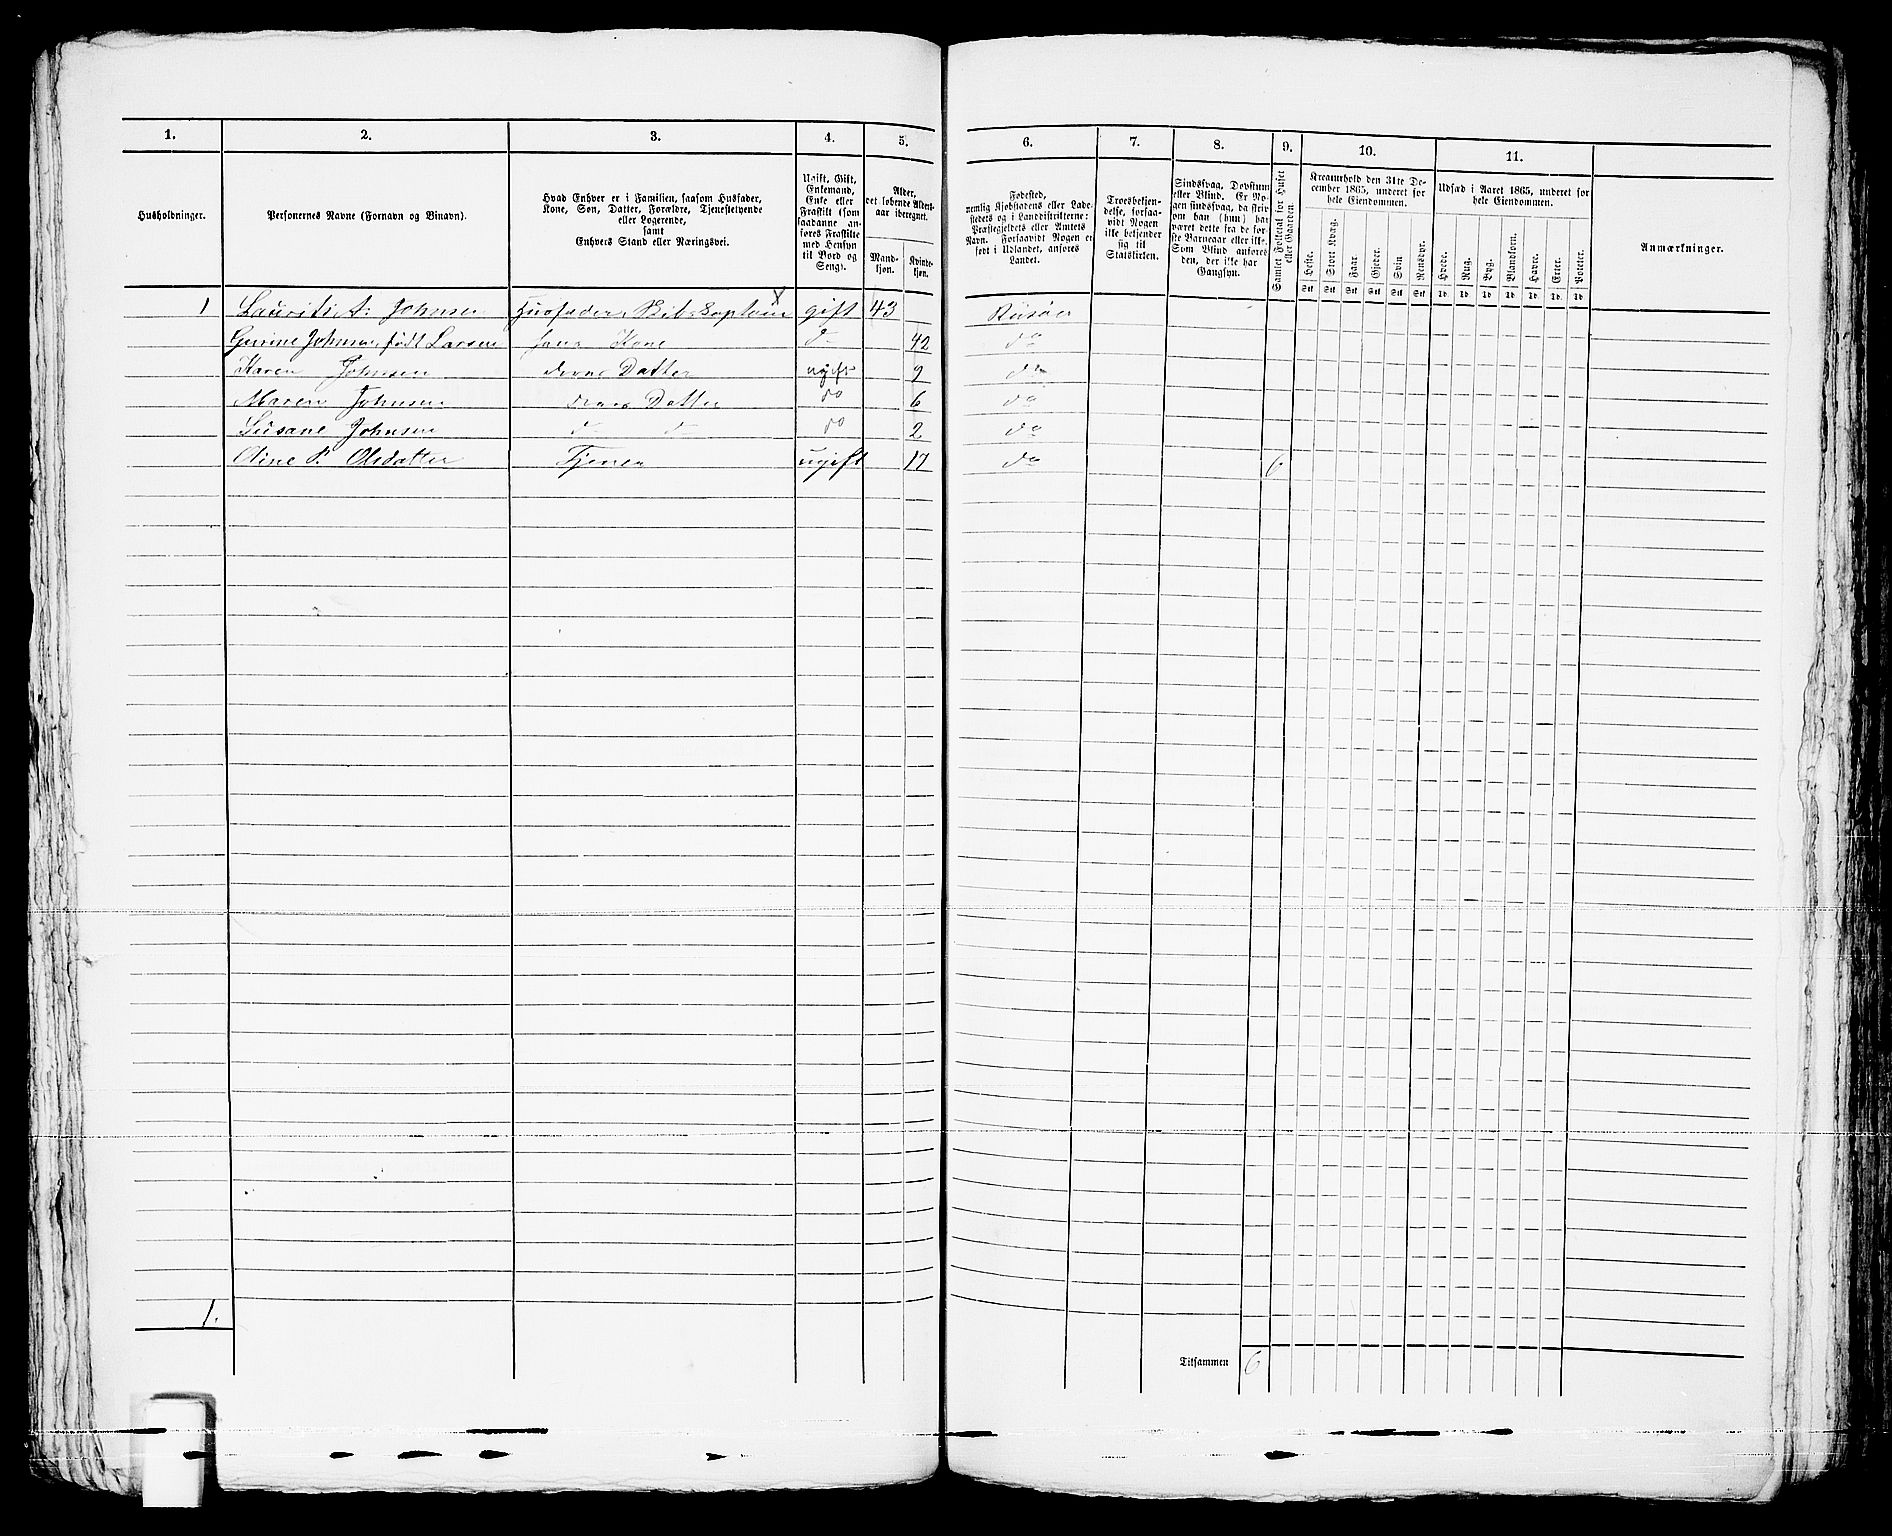 1. 2. 3. 4. 5. 6. 7. 8. 9. 10. 11.
Husholdninger.
Personernes Navne (Fornavn og Binavn).
Hvad Enhver er i Familien, saasom Husfader,
Kone, Søn, Datter, Forældre, Tjenestetyende
eller Logerende,
samt
Enhvers Stand eller Næringsvei.
Ugift, Gift,
Enkemand,
Enke eller
Fraskilt (som
saadanne an-
føres Fraskilte
med Hensyn
til Bord og
Seng).
Alder,
det løbende Alders-
aar iberegnet.
Mand-
kjøn.
Kvinde-
kjøn.
Fødested,
nemlig Kjøbstadens eller Lade-
stedets og i Landdistrikterne:
Præstegjeldets eller Amtets
Navn. Forsaavidt Nogen er
født i Udlandet, anføres
Landet.
Troesbekjen-
delse, forsaa-
vidt Nogen
ikke bekjender
sig til
Statskirken.
Sindssvag, Døvstum
eller Blind. Er No-
gen sindssvag, da skriv
om han (hun) har
været dette fra de før-
ste Barneaar eller ikke.
Som Blind anføres
den, der ikke har
Gangsyn.
Samlet Folketal for Huset
eller Gaarden.
Kreaturhold den 31te De-
cember 1865, underet for
hele Eiendommen.
Heste. Stort Kvæg. Faar. Gjeder. Svin Rensdyr.
Stk Stk Stk Stk Stk Stk
Udsæd i Aaret 1865, underet for
hele Eiendommen.
Hvede. Rug. Byg. Blandkorn. Havre. Erter. Poteter.
Td. Td. Td. Td. Td. Td. Td.
Anmærkninger.
1 Johnsen Husfader gift 43 Risøer
Gurine Johnsen født Larsen hans Kone d- 42 do
Karen Johnsen deres Datter ugift 9 do
Maren Johnsen deres Datter do 6 do
Susane Johnsen d- d- do 2 do
P. Olsdatter Tjener ugift 17 do 6
1.
Tilsammen 6